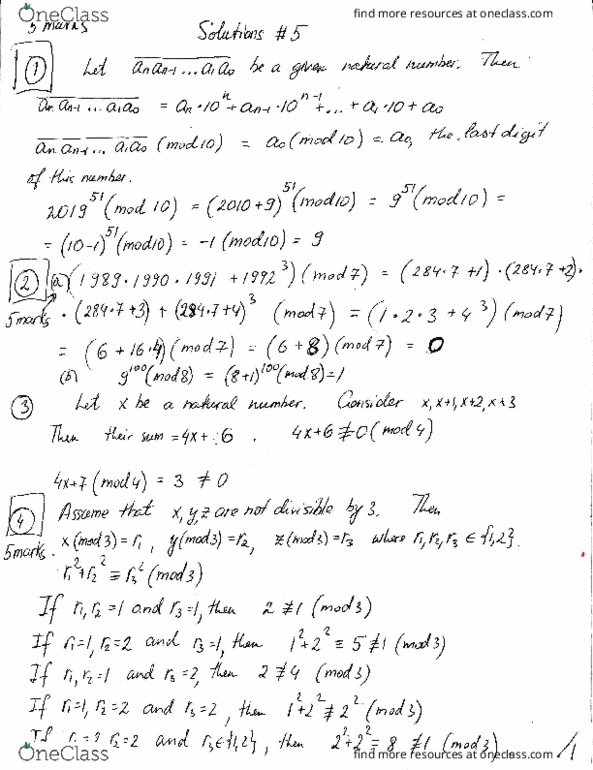 OneClass
find more resources at oneclass.com
5 marks
Solutions #5
① Let anan-1 ... a1a0 be a given natural number. Then
anan-1 ... a1a0 = an·10^n + an-1·10^n-1 + ... + a1·10 + a0
anan-1 ... a1a0 (mod 10) = a0 (mod 10) = a0, the last digit
of this number.
2019^51 (mod 10) = (2010+9)^51 (mod 10) = 9^51 (mod 10) =
= (10-1)^51 (mod 10) = -1 (mod 10) = 9
② (a) (1989·1990·1991 + 1992^3) (mod 7) = (284·7+1)·(284·7+2)·
5 marks ·(284·7+3) + (284·7+4)^3 (mod 7) = (1·2·3 + 4^3) (mod 7)
= (6 + 16·4) (mod 7) = (6 + 8) (mod 7) = 0
(b) 9^100 (mod 8) = (8+1)^100 (mod 8) = 1
③ Let x be a natural number. Consider x, x+1, x+2, x+3
Then their sum = 4x + 6. 4x+6 ≢ 0 (mod 4)
4x+7 (mod 4) = 3 ≠ 0
④ Assume that x, y, z are not divisible by 3. Then
5 marks. x (mod 3) = r1, y (mod 3) = r2, z (mod 3) = r3 where r1, r2, r3 ∈ {1,2}.
r1^2 + r2^2 ≡ r3^2 (mod 3)
If r1, r2 = 1 and r3 = 1, then 2 ≢ 1 (mod 3)
If r1 = 1, r2 = 2 and r3 = 1, then 1^2 + 2^2 ≡ 5 ≢ 1 (mod 3)
If r1, r2 = 1 and r3 = 2, then 2 ≢ 4 (mod 3)
If r1 = 1, r2 = 2 and r3 = 2, then 1^2 + 2^2 ≢ 2^2 (mod 3)
If r1 = 2 r2 = 2 and r3 ∈ {1,2}, then 2^2 + 2^2 = 8 ≢ 1 (mod 3).
OneClass
find more resources at oneclass.com